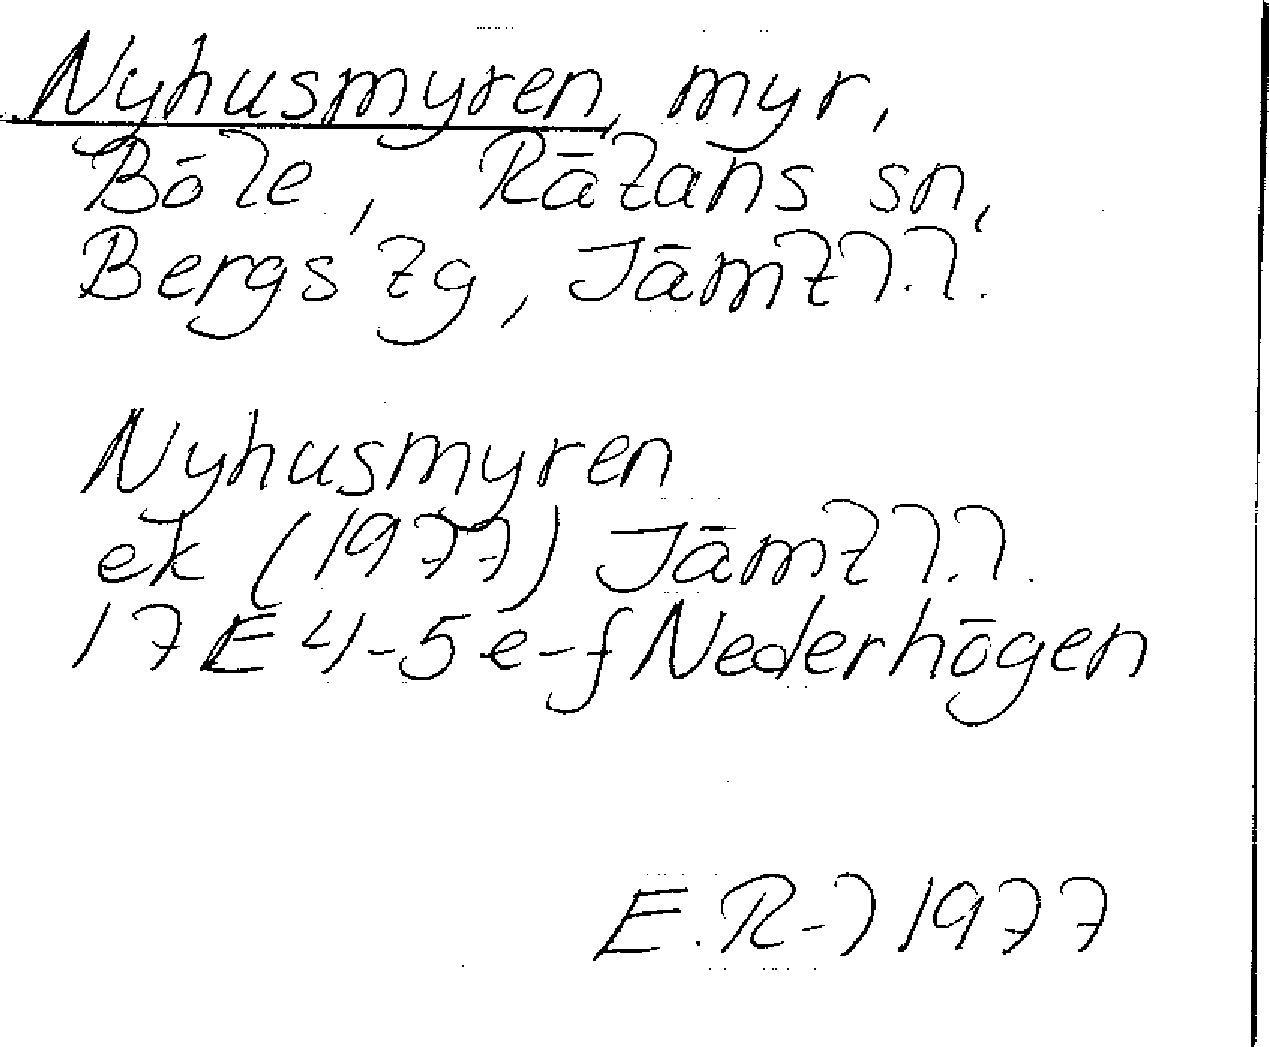 Nyhusmyren, myr,
Böle, Rätans sn,
Bergs tg, Jämtl.l.
Nyhusmyren
ek (1977) Jämtl.l.
17E 4-5 e-f Nederhögen
E.R-l 1977